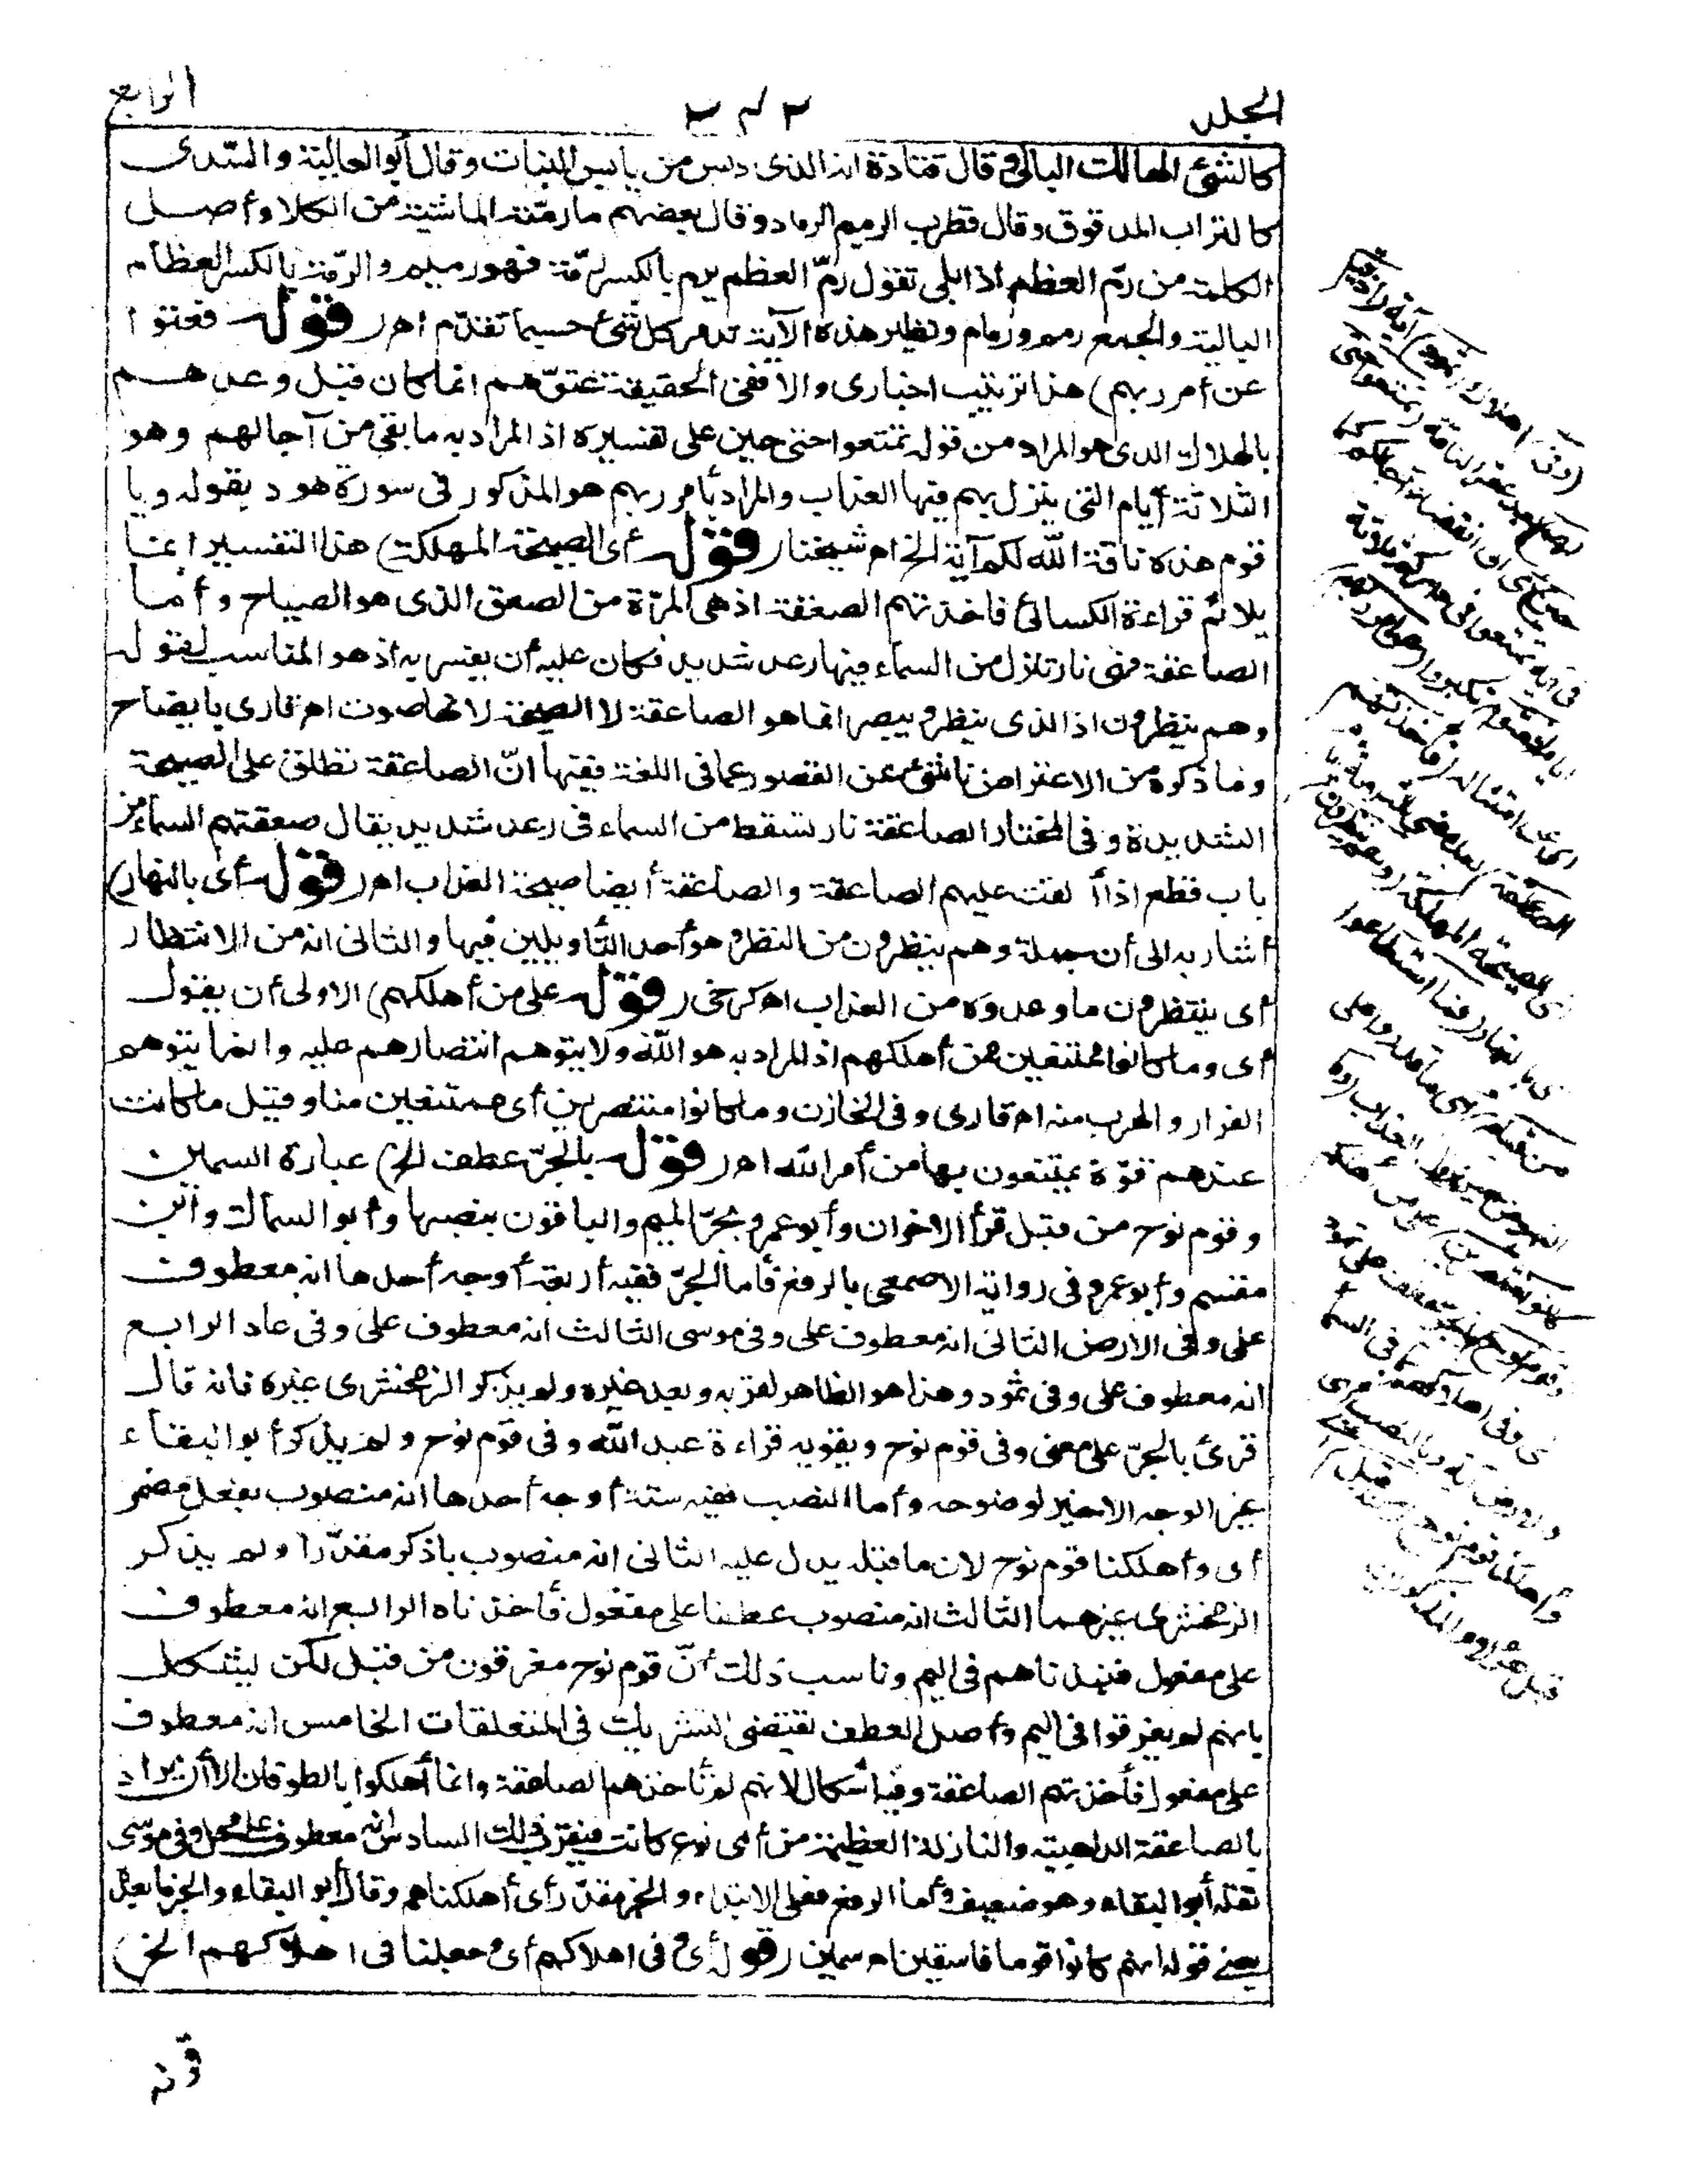 المجلد
الرابع
كالشئ الهالك البالى قال قتادة انه الذى ديس من يابس النبات وقال أبو العالية والسدى
كالتراب المدقوق وقال قطرب الرميم الرماد وقال بعضهم ما رمته الماشية من الكلا وأصل
الكلمة من رم العظم اذا بلى تقول رمّ العظم يرم بالكسر رمّة فهو رميم والرّمة بالكسر العظام
البالية والجمع رمم ورمام ونظير هذه الآية تدمر كل شئ حسبما تقدّم اهـ (قوله فعتوا
عن أمر ربهم) هذا ترتيب اخبارى والا ففى الحقيقة عتوّهم انما كان قبل وعدهم
بالهلاك الذى هو المراد من قوله تمتعوا حتى حين على تفسيره اذ المراد به ما بقى من آجالهم وهو
الثلاثة أيام التى ينزل بهم فيها العذاب والمراد بأمر ربهم هو المذكور فى سورة هود بقوله ويا
قوم هذه ناقة الله لكم آية الخ اهـ شيخنا (قوله أى الصيحة المهلكة) هذا التفسير انما
يلائم قراءة الكسائى فاخذتهم الصعقة اذ هى المرّة من الصعق الذى هو الصياح وأما
الصاعقة فهى نار تنزل من السماء فيها رعد شديد فكان عليه أن يفسر به اذ هو المناسب لقوله
وهم ينظرون اذ الذى ينظر ويبصر انما هو الصاعقة لا الصيحة لانها صوت اهـ قارى بايضاح
وما ذكره من الاعتراض ناشئ عن القصور عما فى اللغة ففيها انّ الصاعقة تطلق على الصيحة
الشديدة وفى المختار الصاعقة نار تسقط من السماء فى رعد شديد يقال صعقتهم السماء من
باب قطع اذا ألقت عليهم الصاعقة والصاعقة أيضا صيحة العذاب اهـ (قوله أى بالنهار)
أشار به الى أن جملة وهم ينظرون من النظر وهو أحد التأويلين فيها والثانى انه من الانتظار
أى ينتظرون ما وعدوه من العذاب اهـ كرخى (قوله على من أهلكهم) الاولى أن يقول
أى وما كانوا ممتنعين ممن أهلكهم اذ المراد به هو الله ولا يتوهم انتصارهم عليه وانما يتوهم
الفرار والهرب منه اهـ قارى وفى الخازن وما كانوا منتصرين أى ممتنعين منا وقيل ما كانت
عندهم قوّة يمتنعون بها من أمر الله اهـ (قوله بالجرّ عطف الخ) عبارة السمين
وقوم نوح من قبل قرأ الاخوان وأبو عمرو بجرّ الميم والباقون بنصبها وأبو السمال وابن
مقسم وأبو عمرو فى رواية الاصمعى بالرفع فأما الجرّ ففيه أربعة أوجه أحدها انه معطوف
على وفى الارض الثانى انه معطوف على وفى موسى الثالث انه معطوف على وفى عاد الرابع
انه معطوف على وفى ثمود وهذا هو الظاهر لقربه وبعد غيره ولم يذكر الزمخشرى غيره فانه قال
قرئ بالجرّ على معنى وفى قوم نوح ويقويه قراءة عبد الله وفى قوم نوح ولم يذكر أبو البقاء
غير الوجه الاخير لوضوحه وأما النصب ففيه ستة أوجه أحدها انه منصوب بفعل مضمر
أى وأهلكنا قوم نوح لان ما قبله يدل عليه الثانى انه منصوب باذكر مقدّرا ولم يذكر
الزمخشرى غيرهما الثالث انه منصوب عطفا على مفعول فأخذناه الرابع انه معطوف
على مفعول فنبذناهم فى اليم وناسب ذلك أنّ قوم نوح مغرقون من قبل لكن يشكل
بانهم لم يغرقوا فى اليم وأصل العطف يقتضى التشريك فى المتعلقات الخامس انه معطوف
على مفعول فأخذتهم الصاعقة وفيه اشكال لانهم لم تأخذهم الصاعقة وانما أهلكوا بالطوفان الا أن يراد
بالصاعقة الداهية والنازلة العظيمة من أى نوع كانت فيقرب ذلك السادس انه معطوف على محل وفى موسى
نقله أبو البقاء وهو ضعيف وأما الرفع فعلى الابتداء والخبر مقدّر أى أهلكناهم وقال أبو البقاء والخبر ما بعد
يعنى قوله انهم كانوا قوما فاسقين اهـ سمين (قوله أى وفى اهلاكهم أى وجعلنا فى اهلاكهم الخ)
(وفى) اهلاك (ثمود) آية (اذ قيل
لهم) بعد عقر الناقة (تمتعوا حتى
حين) أى الى انقضاء آجالكم كما
فى آية تمتعوا فى داركم ثلاثة
أيام (فعتوا) تكبروا (عن أمر ربهم)
أى عن امتثاله (فأخذتهم
الصاعقة) بعد مضى الثلاثة
أى الصيحة المهلكة (وهم ينظرون)
أى بالنهار (فما استطاعوا